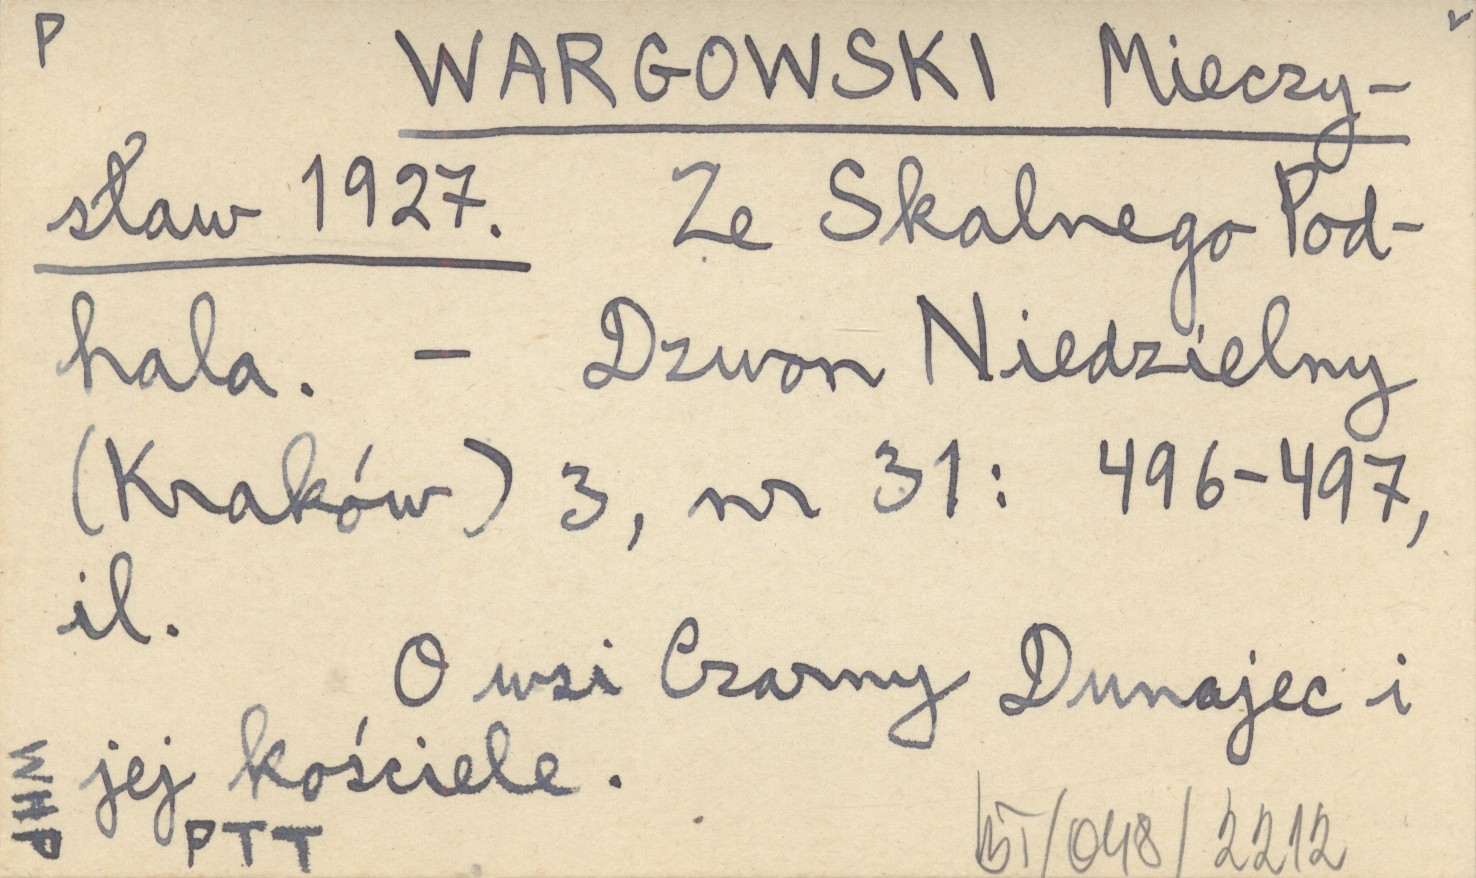 P
v
WARGOWSKI Mieczy-
sław 1927. Ze Skalnego Pod-
hala. – Dzwon Niedzielny
(Kraków) 3, nr 31: 496-497,
il.
O wsi Czarny Dunajec i
jej kościele.
WHP
PTT
/048/2212